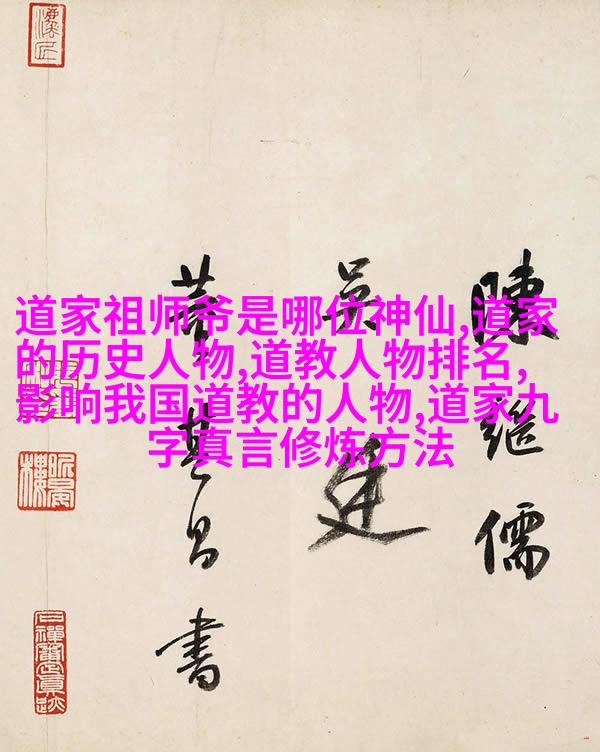 道家祖师爷是哪位神仙,道家
的历史人物,道教人物排名,
影响我国道教的人物,道家九
字真言修炼方法
陳繼儒
吴廷
董其昌書